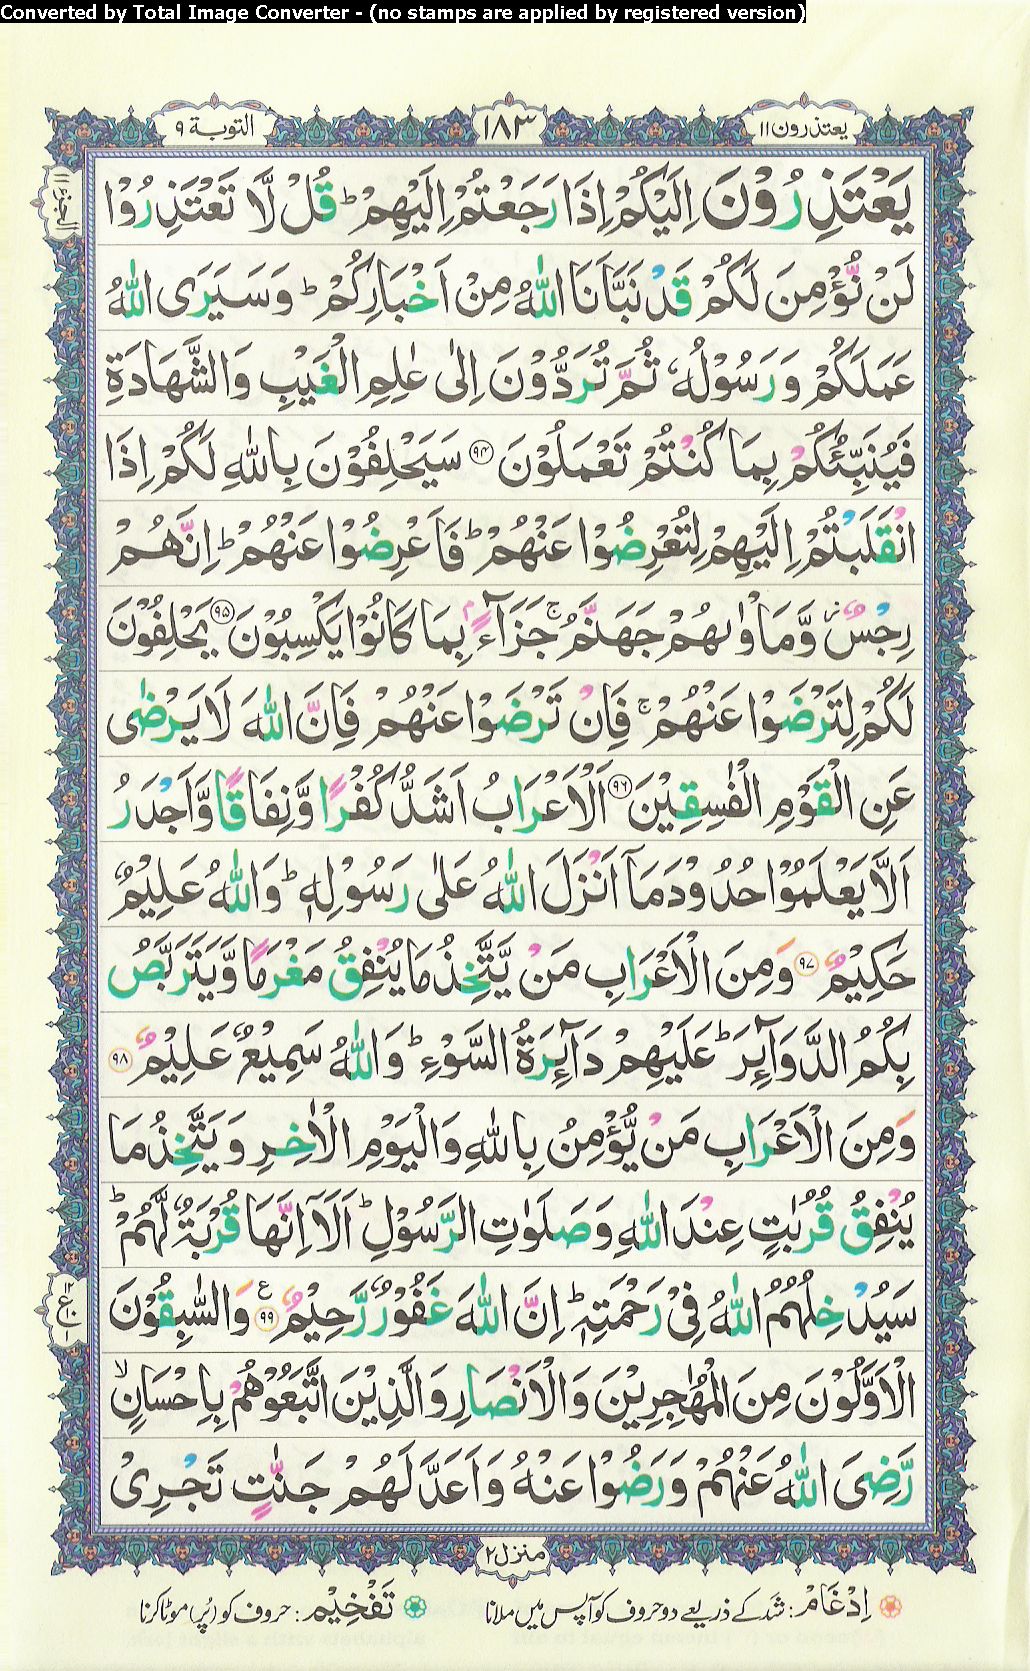 Converted by Total Image Converter - (no stamps are applied by registered version)
یعتذرون ۱۱
۱۸۳
التوبة ۹
الجزء ۱۱
يَعْتَذِرُوْنَ اِلَيْكُمْ اِذَا رَجَعْتُمْ اِلَيْهِمْ ؕ قُلْ لَّا تَعْتَذِرُوْا
لَنْ نُّؤْمِنَ لَكُمْ قَدْ نَبَّاَنَا اللّٰهُ مِنْ اَخْبَارِكُمْ ؕ وَسَيَرَى اللّٰهُ
عَمَلَكُمْ وَرَسُوْلُهٗ ثُمَّ تُرَدُّوْنَ اِلٰى عٰلِمِ الْغَيْبِ وَالشَّهَادَةِ
فَيُنَبِّئُكُمْ بِمَا كُنْتُمْ تَعْمَلُوْنَ ۹۴ سَيَحْلِفُوْنَ بِاللّٰهِ لَكُمْ اِذَا
انْقَلَبْتُمْ اِلَيْهِمْ لِتُعْرِضُوْا عَنْهُمْ ؕ فَاَعْرِضُوْا عَنْهُمْ ؕ اِنَّهُمْ
رِجْسٌ ز وَّمَاْوٰىهُمْ جَهَنَّمُ ۚ جَزَآءًۢ بِمَا كَانُوْا يَكْسِبُوْنَ ۹۵ يَحْلِفُوْنَ
لَكُمْ لِتَرْضَوْا عَنْهُمْ ۚ فَاِنْ تَرْضَوْا عَنْهُمْ فَاِنَّ اللّٰهَ لَا يَرْضٰى
عَنِ الْقَوْمِ الْفٰسِقِيْنَ ۹۶ اَلْاَعْرَابُ اَشَدُّ كُفْرًا وَّنِفَاقًا وَّاَجْدَرُ
اَلَّا يَعْلَمُوْا حُدُوْدَ مَاۤ اَنْزَلَ اللّٰهُ عَلٰى رَسُوْلِهٖ ؕ وَاللّٰهُ عَلِيْمٌ
حَكِيْمٌ ۹۷ وَمِنَ الْاَعْرَابِ مَنْ يَّتَّخِذُ مَا يُنْفِقُ مَغْرَمًا وَّيَتَرَبَّصُ
بِكُمُ الدَّوَآئِرَ ؕ عَلَيْهِمْ دَآئِرَةُ السَّوْءِ ؕ وَاللّٰهُ سَمِيْعٌ عَلِيْمٌ ۹۸
وَمِنَ الْاَعْرَابِ مَنْ يُّؤْمِنُ بِاللّٰهِ وَالْيَوْمِ الْاٰخِرِ وَيَتَّخِذُ مَا
يُنْفِقُ قُرُبٰتٍ عِنْدَ اللّٰهِ وَصَلَوٰتِ الرَّسُوْلِ ؕ اَلَاۤ اِنَّهَا قُرْبَةٌ لَّهُمْ ؕ
سَيُدْخِلُهُمُ اللّٰهُ فِيْ رَحْمَتِهٖ ؕ اِنَّ اللّٰهَ غَفُوْرٌ رَّحِيْمٌ ۹۹ ع وَالسّٰبِقُوْنَ
الْاَوَّلُوْنَ مِنَ الْمُهٰجِرِيْنَ وَالْاَنْصَارِ وَالَّذِيْنَ اتَّبَعُوْهُمْ بِاِحْسَانٍ ۙ
رَّضِيَ اللّٰهُ عَنْهُمْ وَرَضُوْا عَنْهُ وَاَعَدَّ لَهُمْ جَنّٰتٍ تَجْرِيْ
منزل ۲
اِدْغَامْ: شد کے ذریعے دو حروف کو آپس میں ملانا
تَفْخِیْم: حروف کو (پُر) موٹا کرنا